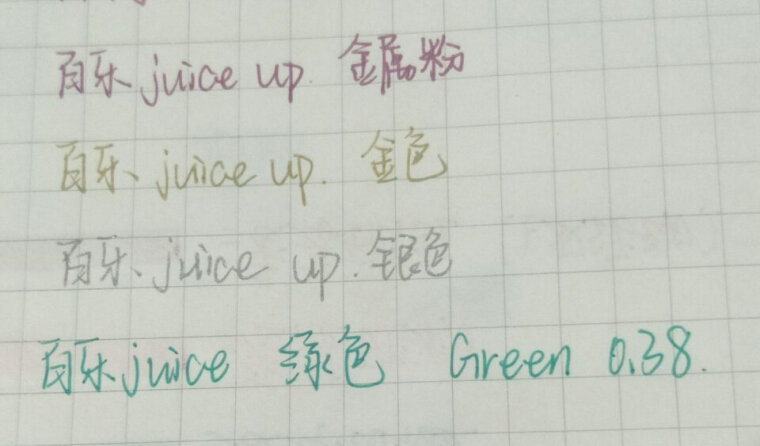 百乐 juice up. 金属粉
百乐、juice up. 金色
百乐、juice up. 银色
百乐 juice 绿色 Green 0.38.